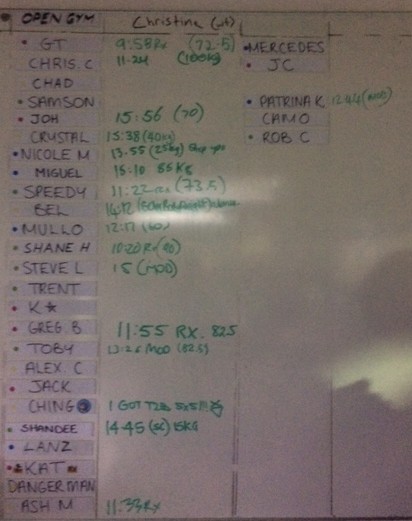 OPEN GYM Christina (wt)
GT 9:58Rx (72.5) MERCEDES
CHRIS.C 11.24 (100kg) JC
CHAD
SAMSON PATRINA K 12:44 (MOD)
JOH 15:56 (70) CAMO
CRYSTAL 15:38 (40kg) ROB C
NICOLE M 13.55 (25kg) Step ups
MIGUEL 15:10 85KG
SPEEDY 11:22 (73.5)
BEL 14:12
MULLO 12:17 (60)
SHANE H 10:20 Rx
STEVE L 15 (MOD)
TRENT
K
GREG.B 11:55 RX. 82.5
TOBY 13:26 MOD (82.5)
ALEX.C
JACK
CHING 1 GOT T2B 5x5!!!
SHANDEE 14:45 (sc) 15KG
LANZ
KAT
DANGERMAN
ASH M 11:33Rx